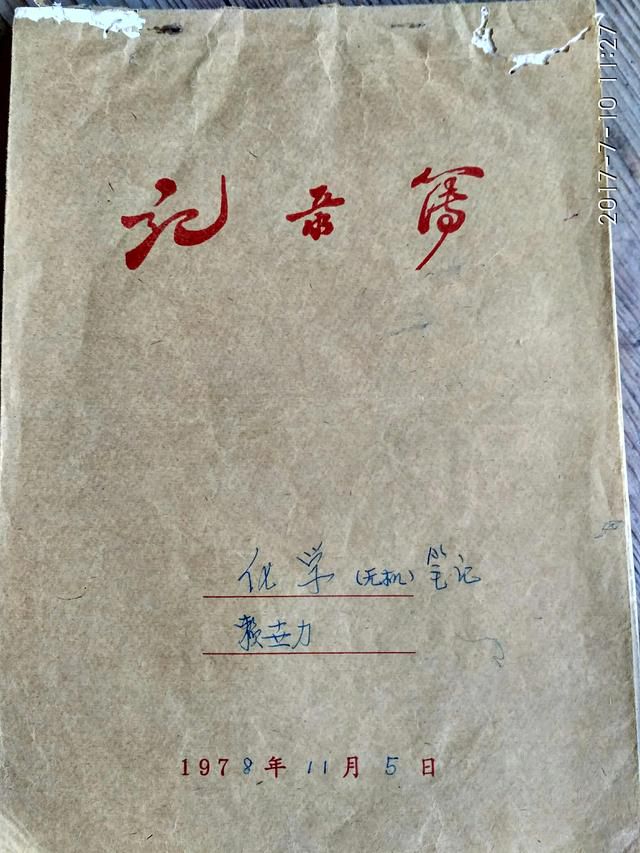 记录簿
化学(无机)笔记
赖世力
1978年11月5日
2017-7-10 11:27